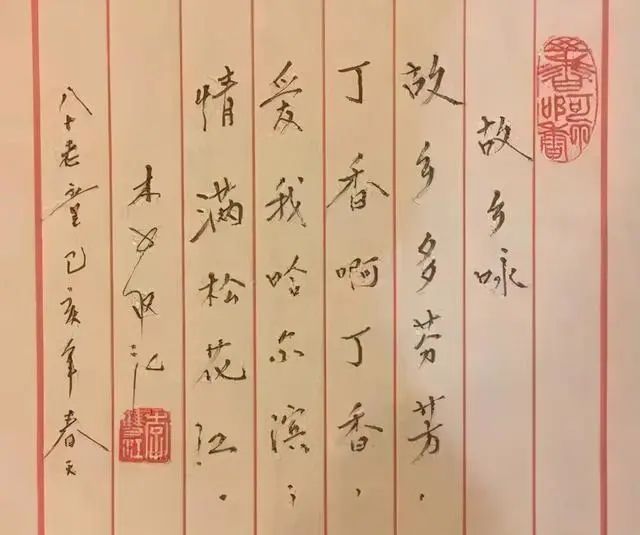 故乡咏
故乡多芬芳，
丁香啊丁香，
爱我哈尔滨；
情满松花江。
八十老童己亥年春天